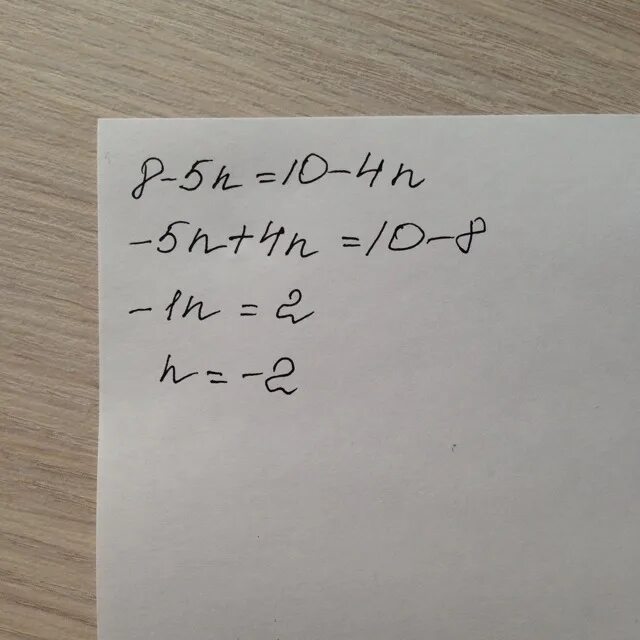 8-5n=10-4n
-5n+4n=10-8
-1n=2
n=-2